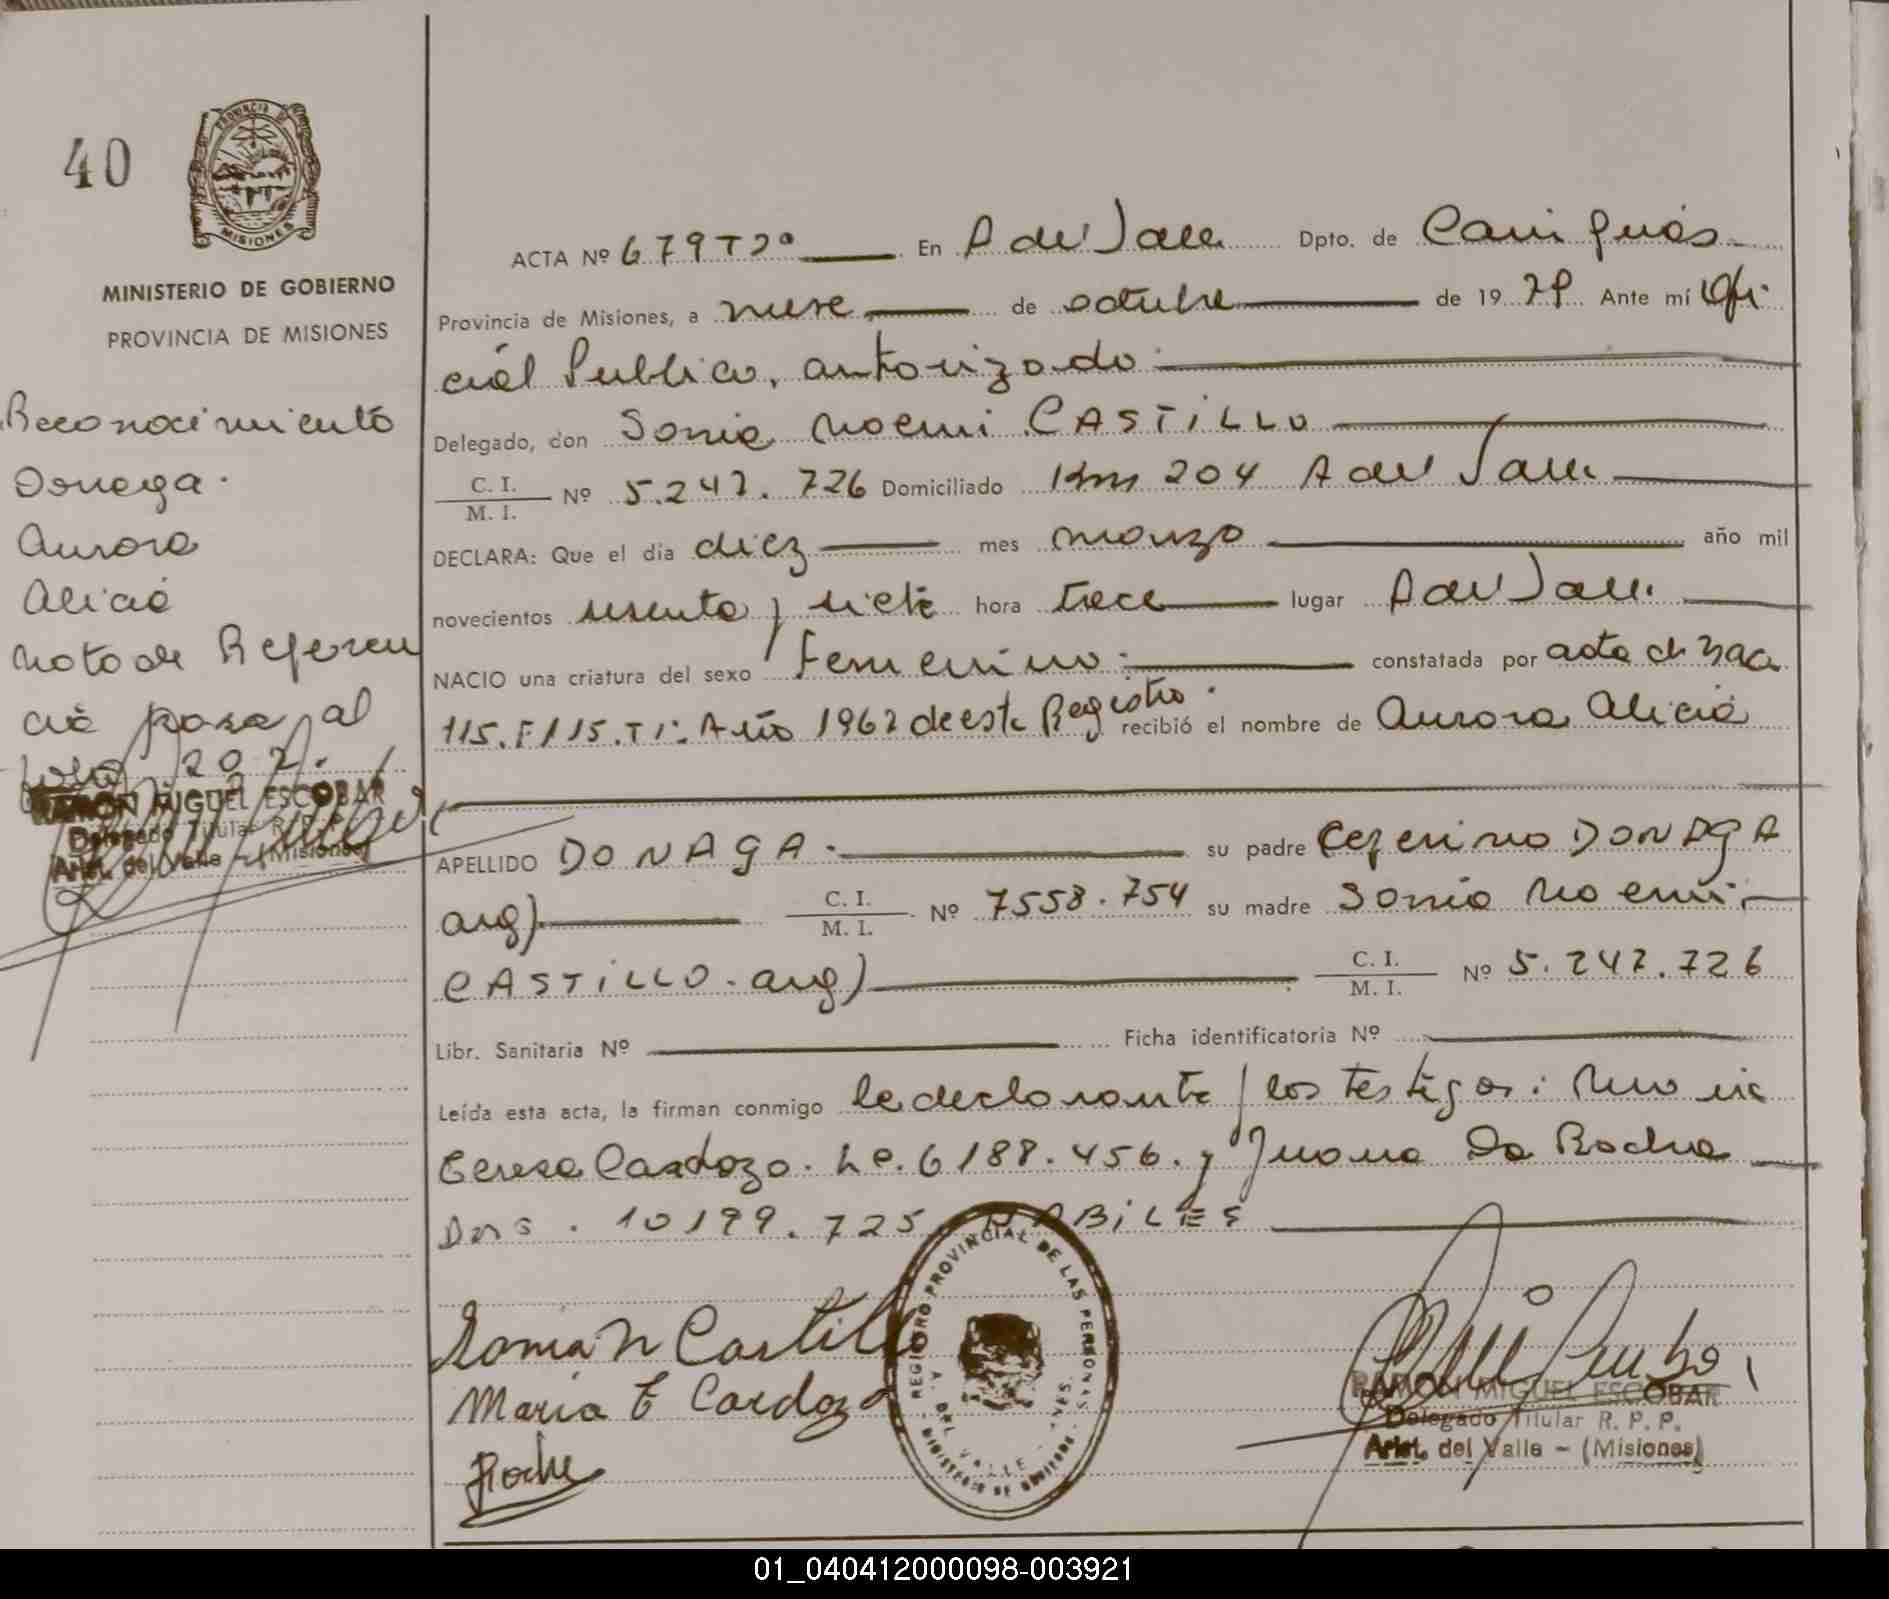 40
PROVINCIA DE
MISIONES
MINISTERIO DE GOBIERNO
PROVINCIA DE MISIONES
Reconocimiento
Donega.
Aurora
Alicia
Nota de Referen
cia pasa al
folio 202.
RAMON MIGUEL ESCOBAR
Delegado Titular R. P. P.
Arist. del Valle - (Misiones)
ACTA Nº 679 T2º En A del Valle Dpto. de Cainguás
Provincia de Misiones, a nueve de octubre de 19 79 Ante mí Ofi
cial Publico, autorizado
Delegado, don Sonia Noemi CASTILLO
C. I.
M. I. Nº 5.247.726 Domiciliado Km 204 A del Valle
DECLARA: Que el día diez mes marzo año mil
novecientos sesenta y siete hora trece lugar A del Valle
NACIO una criatura del sexo Femenino. constatada por acta de nac
115. F 115. T 1: Año 1967 de este Registro. recibió el nombre de Aurora Alicia
APELLIDO DONAGA. su padre Ceferino DONAGA
arg) C. I.
M. I. Nº 7558.754 su madre Sonia Noemi
CASTILLO. arg) C. I.
M. I. Nº 5.247.726
Libr. Sanitaria Nº Ficha identificatoria Nº
Leída esta acta, la firman conmigo la declarante y los testigos:
Teresa Cardozo. Lc. 6188.456. y Juana Da Rocha
10199.725 HABILES
REGISTRO PROVINCIAL DE LAS PERSONAS
A. DEL VALLE
MINISTERIO DE GOBIERNO
Sonia N Castillo
Maria T Cardozo
Roche
RAMON MIGUEL ESCOBAR
Delegado Titular R. P. P.
Arist. del Valle - (Misiones)
01_040412000098-003921